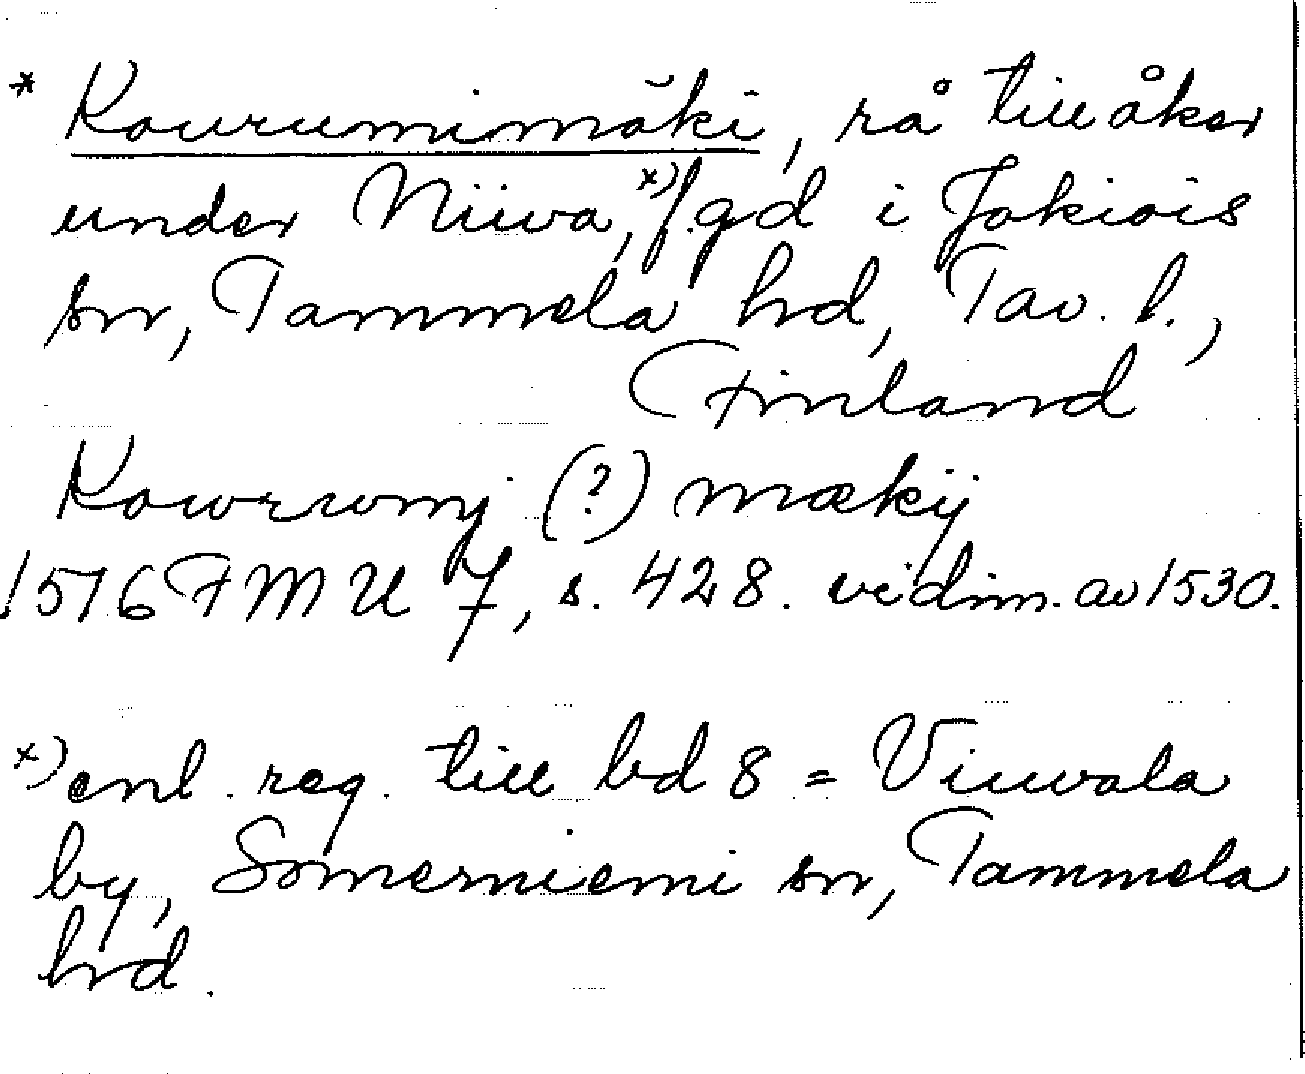 * Kourumimäki, rå till åker
under Niiva,ˣ⁾ f.gd i Jokiois
sn, Tammela hd, Tav. l.,
Finland
Kowrwmj (?) mækij
1516 FMU 7, s. 428. vidim. av 1530.
ˣ⁾ enl. reg. till bd 8 = Viuvala
by, Somerniemi sn, Tammela
hd.